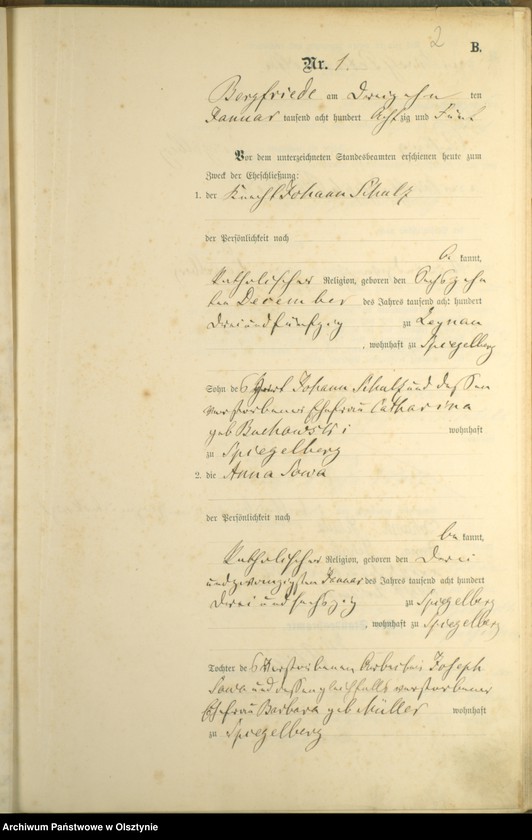 2
B.
Nr. 1.
Bergfriede am Dreizehn ten
Januar tausend acht hundert Achtzig und Fünf
Vor dem unterzeichneten Standesbeamten erschienen heute zum
Zweck der Eheschließung:
1. der Knecht Johann Schulz
der Persönlichkeit nach
be kannt,
katholischer Religion, geboren den Sechszehn
ten December des Jahres tausend acht hundert
drei und fünfzig zu Leynau
, wohnhaft zu Spiegelberg
Sohn des Johann Schulz und dessen
verstorbener Ehefrau Catharina
geb Buchowski wohnhaft
zu Spiegelberg
2. die Anna Sowa
der Persönlichkeit nach
be kannt,
katholischer Religion, geboren den Drei
undzwanzigsten Januar des Jahres tausend acht hundert
drei und sechszig zu Spiegelberg
, wohnhaft zu Spiegelberg
Tochter des verstorbenen Arbeiters Joseph
Sowa und dessen gleichfalls verstorbener
Ehefrau Barbara geb Müller wohnhaft
zu Spiegelberg
Archiwum Państwowe w Olsztynie